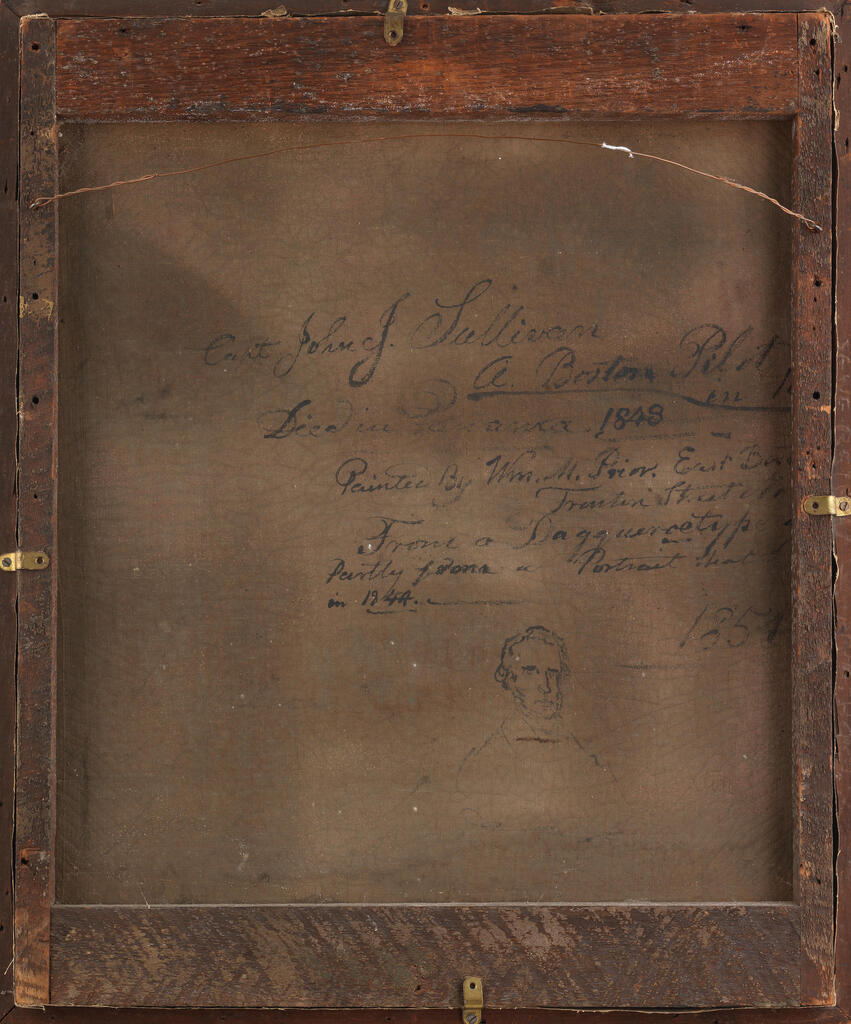 Capt John J. Sullivan
A. Boston Pilot
in
Died in Panama. 1848
Painted By Wm. M. Prior. East
Street
From a Dagguerotype
Partly from a Portrait
in 1844.
185